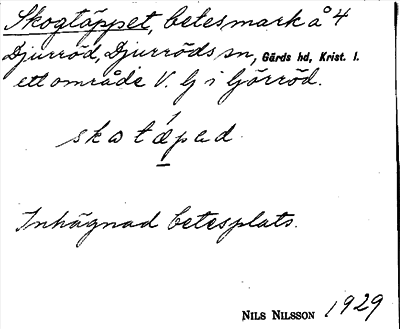 Skogtäppet, betesmark å 4
Djurröd, Djurröds sn, Gärds hd, Krist. l.
ett område V. G i Djurröd.
skotæped
Inhägnad betesplats.
NILS NILSSON 1929